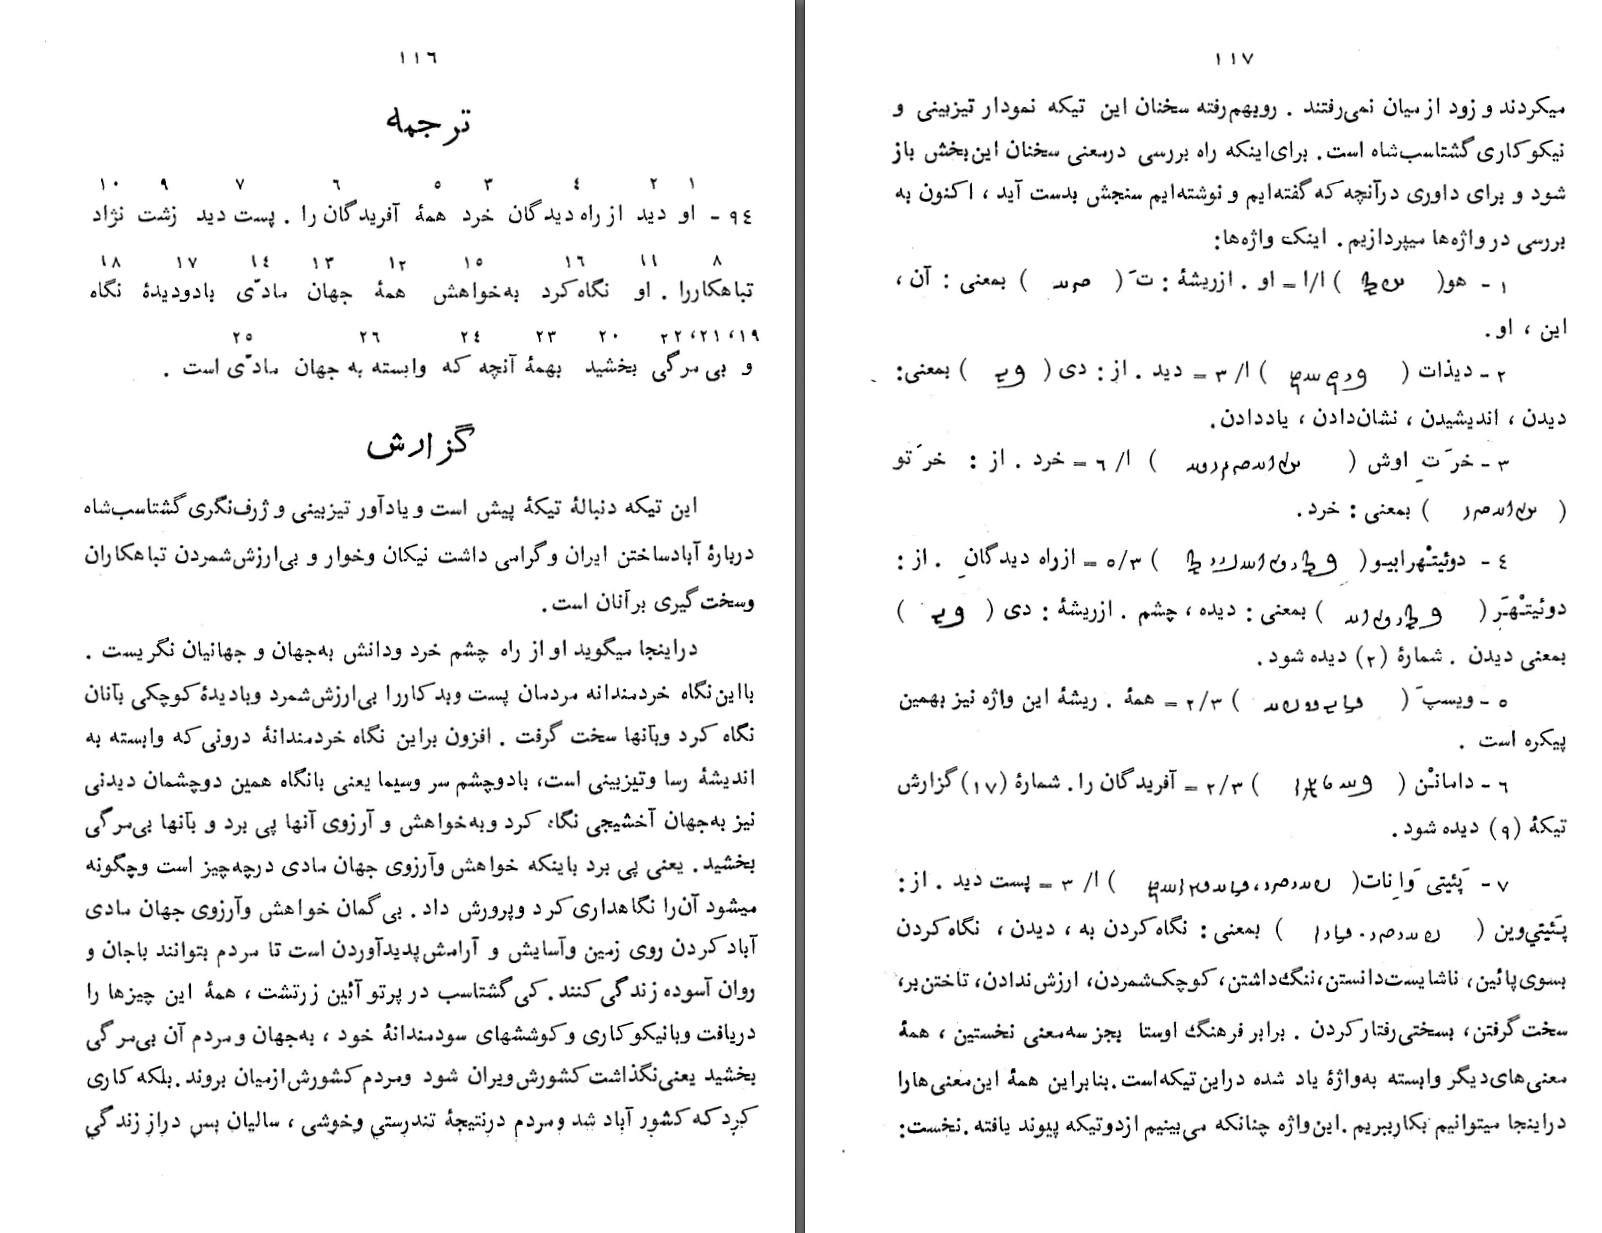 ١١٦
ترجمه
١ ٢ ٤ ٣ ٥ ٦ ٧ ٩ ١٠
٩٤ - او دید از راه دیدگان خرد همهٔ آفریدگان را . پست دید زشت نژاد
٨ ١١ ١٦ ١٥ ١٢ ١٣ ١٤ ١٧ ١٨
تباهکاررا . او نگاه کرد به‌خواهش همهٔ جهان مادّی بادودیدهٔ نگاه
١٩، ٢١، ٢٢ ٢٠ ٢٣ ٢٤ ٢٦ ٢٥
و بی‌مرگی بخشید بهمهٔ آنچه که وابسته به جهان مادّی است .
گزارش
این تیکه دنبالهٔ تیکهٔ پیش است و یادآور تیزبینی و ژرف‌نگری گشتاسب‌شاه
دربارهٔ آبادساختن ایران و گرامی داشت نیکان وخوار و بی‌ارزش‌شمردن تباهکاران
وسخت‌گیری برآنان است.
دراینجا میگوید او از راه چشم خرد ودانش به‌جهان و جهانیان نگریست .
بااین‌نگاه خردمندانه مردمان پست وبدکاررا بی‌ارزش‌شمرد وبادیدهٔ کوچکی بآنان
نگاه کرد وبآنها سخت گرفت . افزون براین نگاه خردمندانهٔ درونی‌که وابسته به
اندیشهٔ رسا وتیزبینی است، بادوچشم سر وسیما یعنی بانگاه همین دوچشمان دیدنی
نیز به‌جهان آخشیجی نگاه کرد وبه‌خواهش و آرزوی آنها پی برد و بآنها بی‌مرگی
بخشید . یعنی پی برد باینکه خواهش وآرزوی جهان مادی درچه‌چیز است وچگونه
میشود آن‌را نگاهداری کرد وپرورش داد . بی‌گمان خواهش وآرزوی جهان مادی
آباد کردن روی زمین وآسایش و آرامش‌پدیدآوردن است تا مردم بتوانند باجان و
روان آسوده زندگی کنند. کی‌گشتاسب در پرتو آئین زرتشت ، همهٔ این چیزها را
دریافت وبانیکوکاری و کوششهای سودمندانهٔ خود ، به‌جهان و مردم آن بی‌مرگی
بخشید یعنی‌نگذاشت کشورش ویران شود ومردم کشورش ازمیان بروند. بلکه کاری
کرد که کشور آباد شد و مردم درنتیجهٔ تندرستی وخوشی ، سالیان بس دراز زندگی
١١٧
میکردند و زود از میان نمی‌رفتند . رویهمرفته سخنان این تیکه نمودار تیزبینی و
نیکوکاری گشتاسب‌شاه است. برای‌اینکه راه بررسی درمعنی سخنان این‌بخش باز
شود و برای داوری درآنچه که گفته‌ایم و نوشته‌ایم سنجش بدست آید ، اکنون به
بررسی در واژه‌ها میپردازیم . اینک واژه‌ها:
١ - هو( ) ١/١ = او . ازریشهٔ : تَ ( ) بمعنی : آن ،
این ، او.
٢ - دیذات ( ) ١/ ٣ = دید . از : دی ( ) بمعنی:
دیدن ، اندیشیدن ، نشان‌دادن ، یاددادن.
٣ - خرَتِ اوش ( ) ١/ ٦ = خرد . از : خرَتو
( ) بمعنی : خرد.
٤ - دوئیثهرابیو( ) ٥/٣ = ازراه دیدگان . از :
دوئیتْهرَ ( ) بمعنی : دیده ، چشم . ازریشهٔ : دی ( )
بمعنی دیدن . شمارهٔ (٢) دیده شود.
٥ - ویسپَ ( ) ٢/٣ = همهٔ . ریشهٔ این واژه نیز بهمین
پیکره است .
٦ - دامانْن ( ) ٢/٣ = آفریدگان را. شمارهٔ (١٧) گزارش
تیکهٔ (٩) دیده شود.
٧ - پَئیتی وَاِنات( ) ١/ ٣ = پست دید . از:
پَئیتی‌وین ( ) بمعنی : نگاه‌کردن به ، دیدن ، نگاه‌کردن
بسوی‌پائین، ناشایست‌دانستن،ننگ‌داشتن، کوچک‌شمردن، ارزش‌ندادن، تاختن‌بر،
سخت گرفتن، بسختی رفتارکردن . برابر فرهنگ اوستا بجز سه‌معنی نخستین ، همهٔ
معنی‌های‌دیگر وابسته به‌واژهٔ یاد شده دراین‌تیکه‌است. بنابراین همهٔ این‌معنی‌هارا
دراینجا میتوانیم بکارببریم .این‌واژه چنانکه می‌بینیم ازدوتیکه پیوند یافته .نخست: